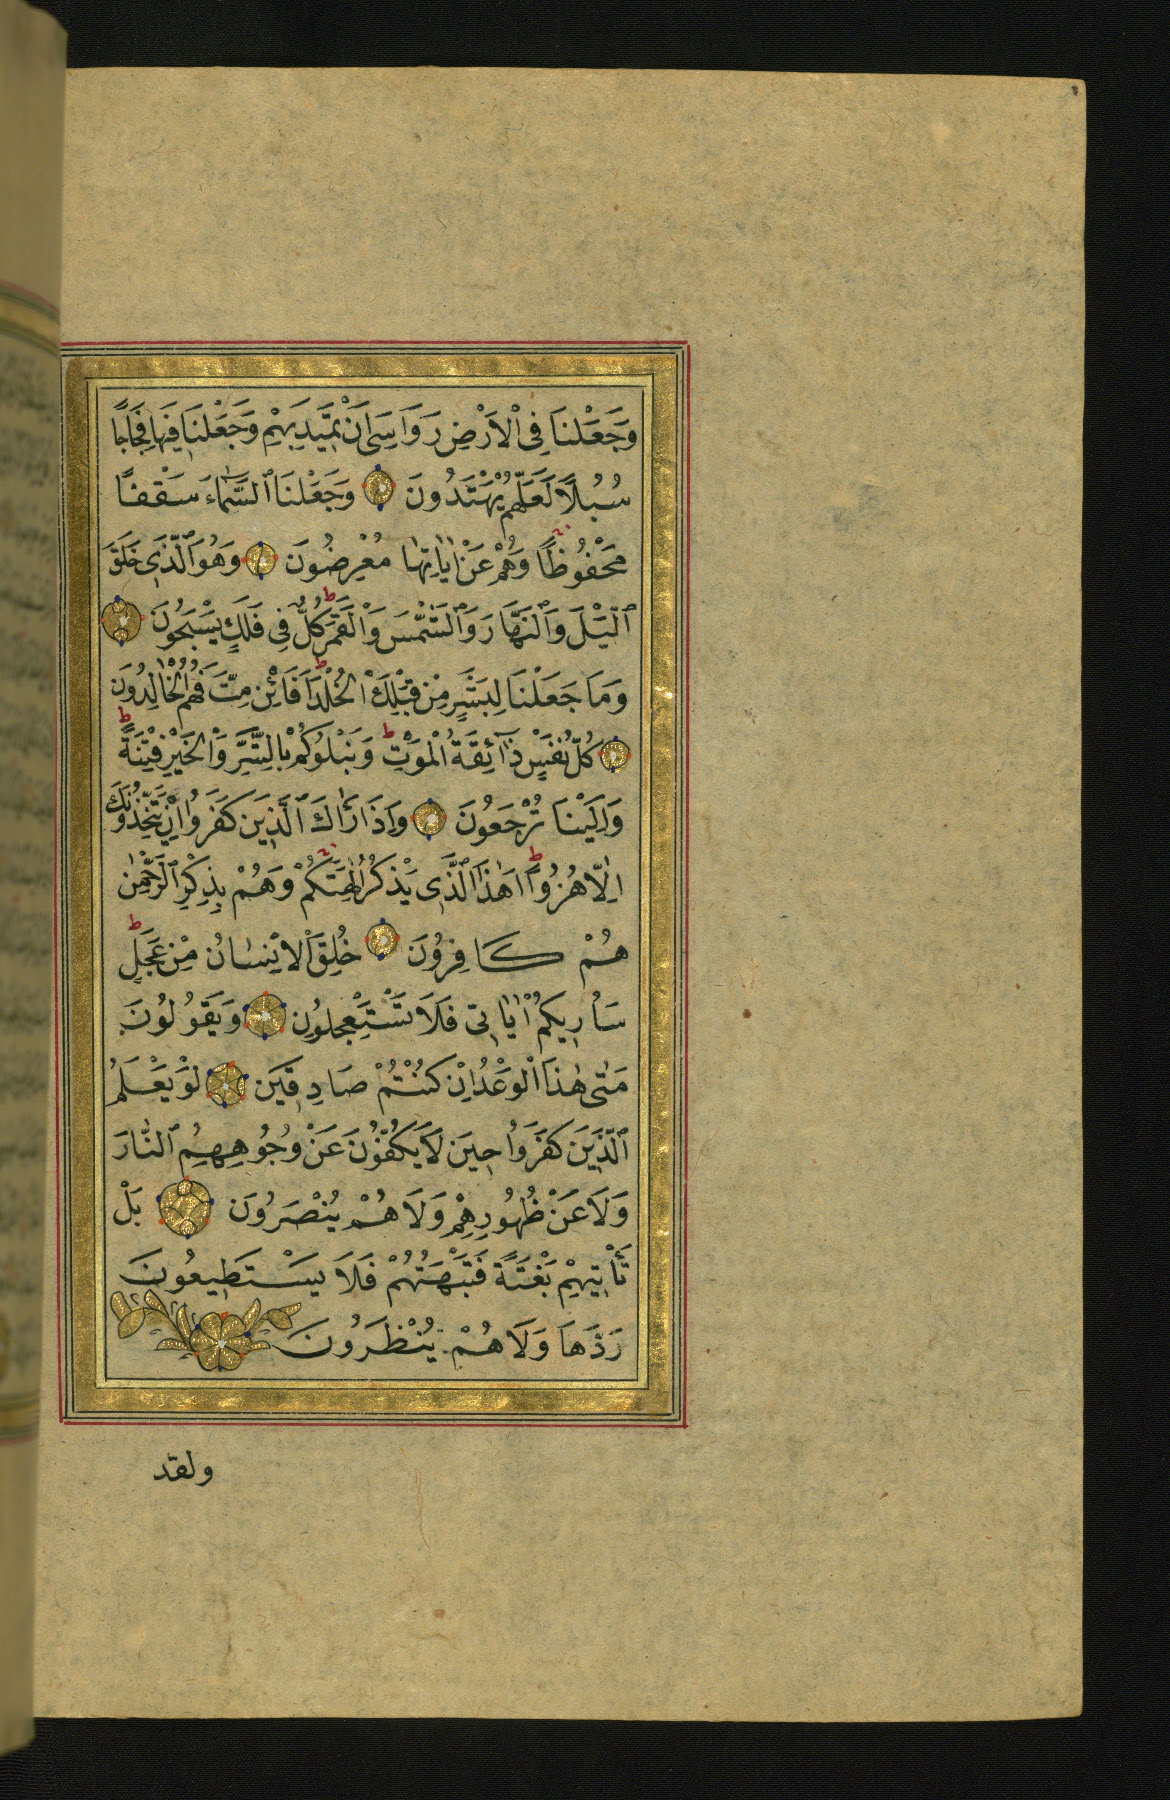 وَجَعَلْنَا فِى الْاَرْضِ رَوَاسِىَ اَنْ تَمٖيدَ بِهِمْ وَجَعَلْنَا فٖيهَا فِجَاجًا
سُبُلًا لَعَلَّهُمْ يَهْتَدُونَ وَجَعَلْنَا السَّمَٓاءَ سَقْفًا
مَحْفُوظًا وَهُمْ عَنْ اٰيَاتِهَا مُعْرِضُونَ وَهُوَ الَّذٖى خَلَقَ
الَّيْلَ وَالنَّهَارَ وَالشَّمْسَ وَالْقَمَرَ كُلٌّ فٖى فَلَكٍ يَسْبَحُونَ
وَمَا جَعَلْنَا لِبَشَرٍ مِنْ قَبْلِكَ الْخُلْدَ اَفَائِنْ مِتَّ فَهُمُ الْخَالِدُونَ
كُلُّ نَفْسٍ ذَٓائِقَةُ الْمَوْتِ وَنَبْلُوكُمْ بِالشَّرِّ وَالْخَيْرِ فِتْنَةً
وَاِلَيْنَا تُرْجَعُونَ وَاِذَا رَاٰكَ الَّذٖينَ كَفَرُوا اِنْ يَتَّخِذُونَكَ
اِلَّا هُزُوًا اَهٰذَا الَّذٖى يَذْكُرُ اٰلِهَتَكُمْ وَهُمْ بِذِكْرِ الرَّحْمٰنِ
هُمْ كَافِرُونَ خُلِقَ الْاِنْسَانُ مِنْ عَجَلٍ
سَاُرٖيكُمْ اٰيَاتٖى فَلَا تَسْتَعْجِلُونِ وَيَقُولُونَ
مَتٰى هٰذَا الْوَعْدُ اِنْ كُنْتُمْ صَادِقٖينَ لَوْ يَعْلَمُ
الَّذٖينَ كَفَرُوا حٖينَ لَا يَكُفُّونَ عَنْ وُجُوهِهِمُ النَّارَ
وَلَا عَنْ ظُهُورِهِمْ وَلَا هُمْ يُنْصَرُونَ بَلْ
تَأْتٖيهِمْ بَغْتَةً فَتَبْهَتُهُمْ فَلَا يَسْتَطٖيعُونَ
رَدَّهَا وَلَا هُمْ يُنْظَرُونَ
ولقد